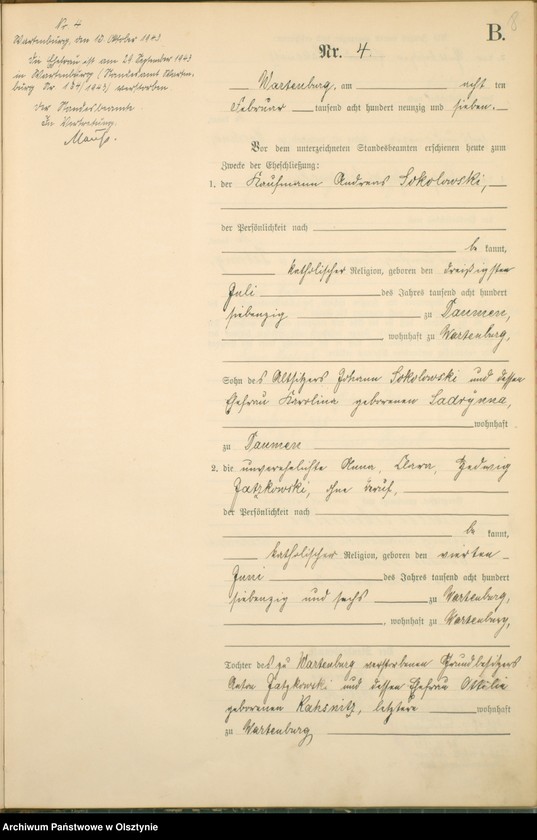 Nr. 4
Wartenburg, den 12. Oktober 1943
Die Ehefrau ist am 29 September 1943
in Wartenburg (Standesamt Warten-
burg Nr. 134/1943) verstorben
Der Standesbeamte
In Vertretung.
B.
8
Nr. 4.
Wartenburg, am acht ten
Februar tausend acht hundert neunzig und sieben.
Vor dem unterzeichneten Standesbeamten erschienen heute zum
Zwecke der Eheschließung:
1. der Kaufmann Andreas Sokolowski,
der Persönlichkeit nach
be kannt,
katholischer Religion, geboren den dreißigsten
Juli des Jahres tausend acht hundert
siebenzig zu Daumen,
, wohnhaft zu Wartenburg,
Sohn des Altsitzers Johann Sokolowski und dessen
Ehefrau Karolina geborenen Sadrynna,
wohnhaft
zu Daumen
2. die unverehelichte Anna, Clara, Hedwig
Jatzkowski, ohne Beruf,
der Persönlichkeit nach
be kannt,
katholischer Religion, geboren den vierten
Juni des Jahres tausend acht hundert
siebenzig und sechs zu Wartenburg,
, wohnhaft zu Wartenburg,
Tochter des zu Wartenburg verstorbenen Grundbesitzers
Anton Jatzkowski und dessen Ehefrau Ottilie
geborenen Rahsnitz, letztere wohnhaft
zu Wartenburg
Archiwum Państwowe w Olsztynie